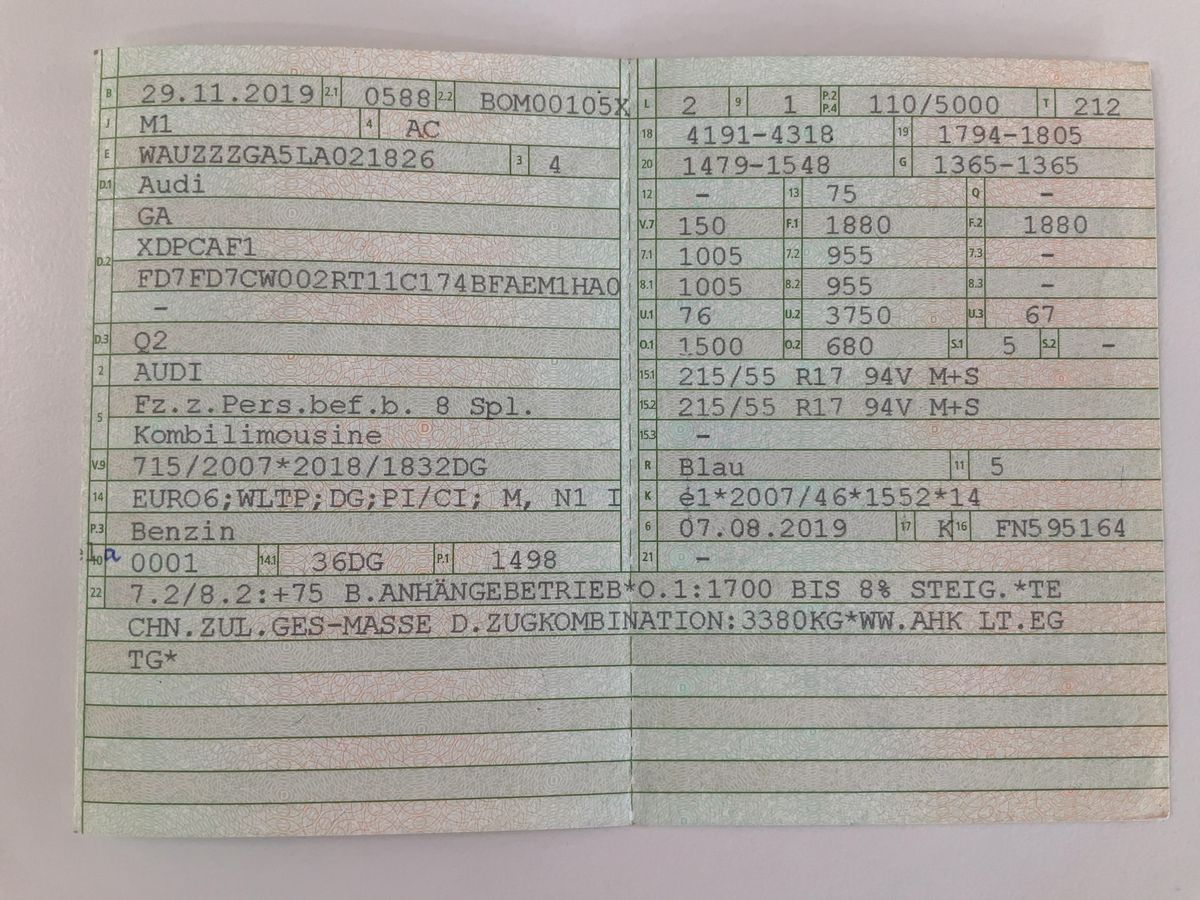 B 29.11.2019 2.1 0588 2.2 BOM00105X
J M1 4 AC
E WAUZZZGA5LA021826 3 4
D.1 Audi
GA
D.2 XDPCAF1
FD7FD7CW002RT11C174BFAEM1HA0
–
D.3 Q2
2 AUDI
5 Fz.z.Pers.bef.b. 8 Spl.
Kombilimousine
V.9 715/2007*2018/1832DG
14 EURO6;WLTP;DG;PI/CI; M, N1 I
P.3 Benzin
10 0001 14.1 36DG P.1 1498
L 2 9 1 P.2 P.4 110/5000 T 212
18 4191-4318 19 1794-1805
20 1479-1548 G 1365-1365
12 – 13 75 Q –
V.7 150 F.1 1880 F.2 1880
7.1 1005 7.2 955 7.3 –
8.1 1005 8.2 955 8.3 –
U.1 76 U.2 3750 U.3 67
O.1 1500 O.2 680 S.1 5 S.2 –
15.1 215/55 R17 94V M+S
15.2 215/55 R17 94V M+S
15.3 –
R Blau 11 5
K e1*2007/46*1552*14
6 07.08.2019 17 K 16 FN595164
21 –
22 7.2/8.2:+75 B.ANHÄNGEBETRIEB*O.1:1700 BIS 8% STEIG.*TE
CHN.ZUL.GES-MASSE D.ZUGKOMBINATION:3380KG*WW.AHK LT.EG
TG*